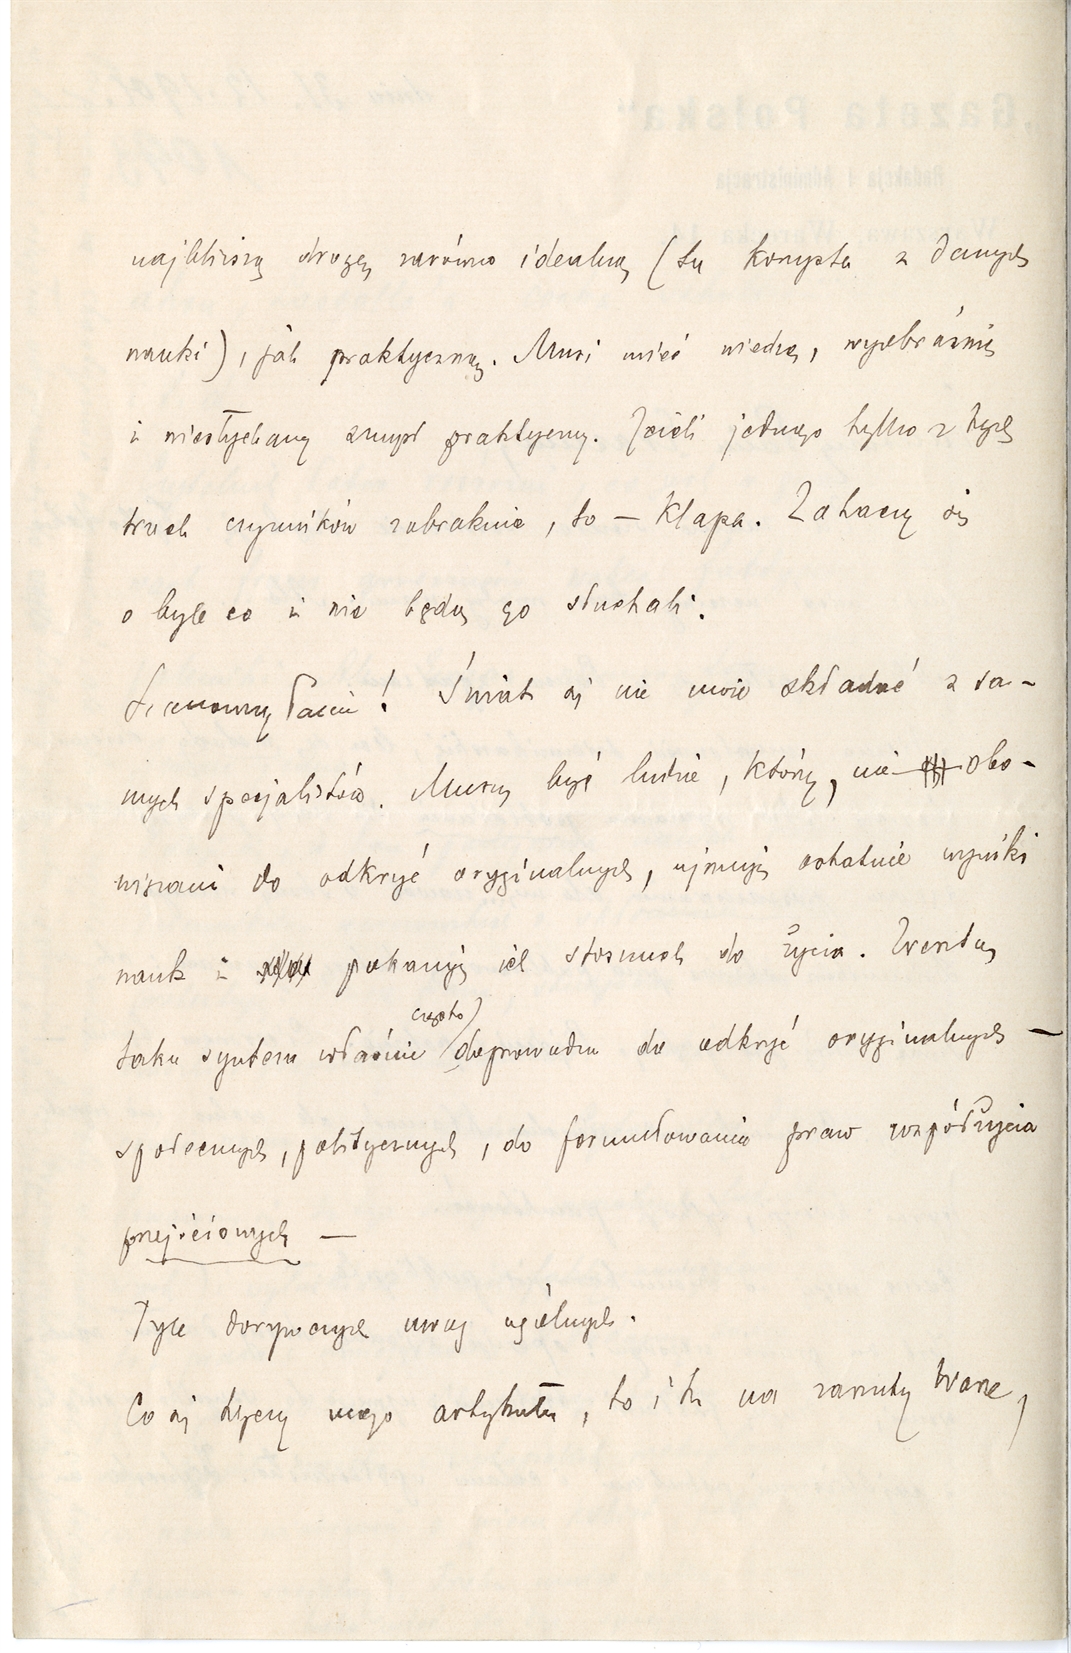 najbliższą drogę zarówno idealną (tu korzysta z danych
nauki), jak praktyczną. Musi mieć wiedzę, wyobraźnię
i niesłychany zmysł praktyczny. Jeżeli jednego tylko z tych
trzech czynników zabraknie, to — klapa. Zahaczy się
o byle co i nie będą go słuchali.
Szanowny Panie! Świat się nie może składać z sa-
mych specjalistów. Muszą być ludzie, którzy, nie obo-
wiązani do odkryć oryginalnych, ujmują ostatnie wyniki
nauk i pokazują ich stosunek do życia. Zresztą
taka synteza właśnie często doprowadza do odkryć oryginalnych —
społecznych, politycznych, do formułowania praw współżycia
przejściowych —
Tyle dorywczych uwag ogólnych.
Co się tyczy mego artykułu, to i tu na zarzuty